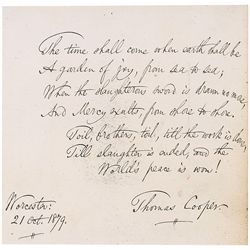 The time shall come when earth shall be
A garden of joy, from sea to sea;
When the slaughterous sword is drawn no more,
And Mercy exults, from shore to shore.
Toil, brothers, toil, till the work is done,
Till slaughter is ended, and the
World's peace is won!
Worcester:
21 Oct. 1879.
Thomas Cooper